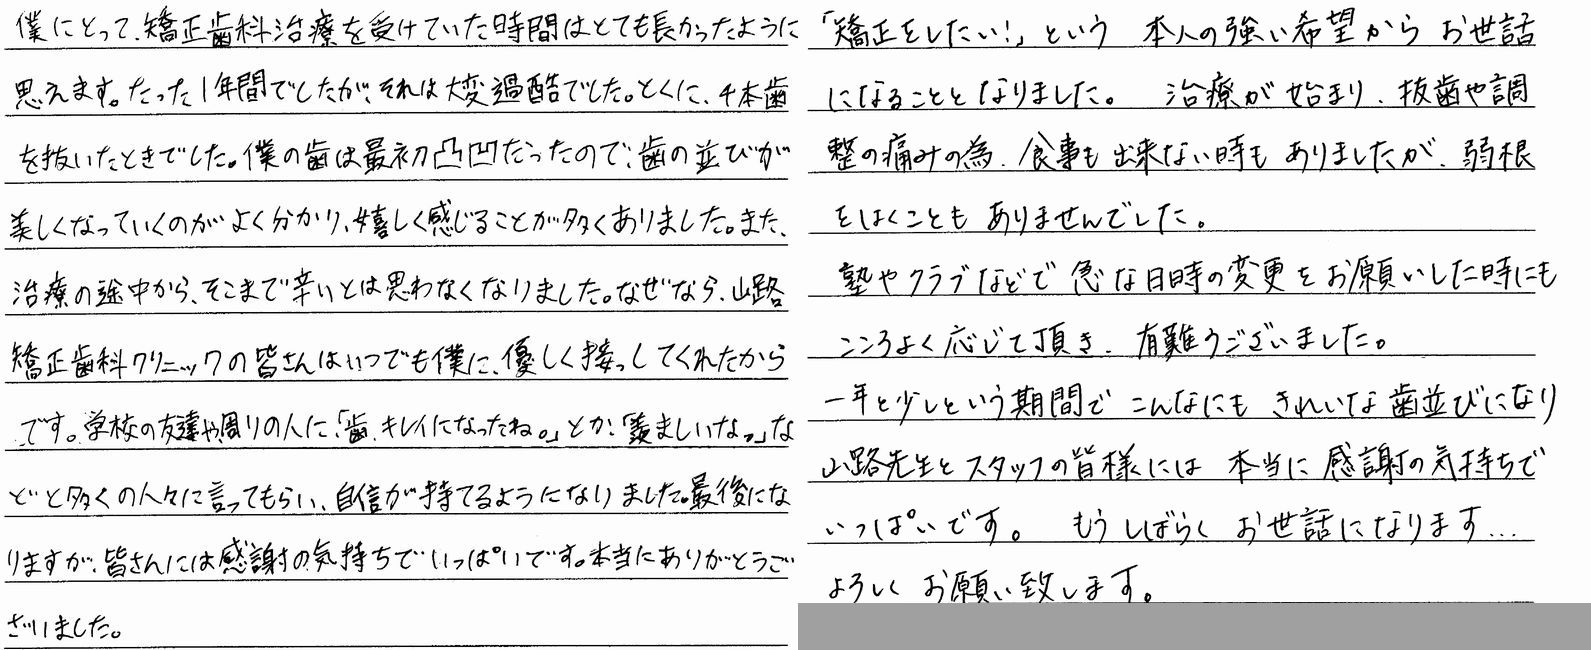 僕にとって、矯正歯科治療を受けていた時間はとても長かったように
思えます。たった1年間でしたが、それは大変過酷でした。とくに、4本歯
を抜いたときでした。僕の歯は最初凸凹だったので、歯の並びが
美しくなっていくのがよく分かり、嬉しく感じることが多くありました。また、
治療の途中から、そこまで辛いとは思わなくなりました。なぜなら、山路
矯正歯科クリニックの皆さんはいつでも僕に、優しく接っしてくれたから
です。学校の友達や周りの人に、「歯、キレイになったね。」とか、「羨ましいなっ。」な
どと多くの人々に言ってもらい、自信が持てるようになりました。最後にな
りますが、皆さんには感謝の気持ちでいっぱいです。本当にありがとうご
ざいました。
「矯正をしたい!」という 本人の強い希望から お世話
になることとなりました。 治療が始まり、抜歯や調
整の痛みの為、食事も出来ない時も ありましたが、弱根
をはくことも ありませんでした。
塾やクラブなどで 急な日時の変更を お願いした時にも
こころよく応じて頂き、有難うございました。
一年と少しという期間で こんなにも きれいな歯並びになり
山路先生とスタッフの皆様には 本当に 感謝の気持ちで
いっぱいです。 もうしばらく お世話になります…
よろしく お願い致します。